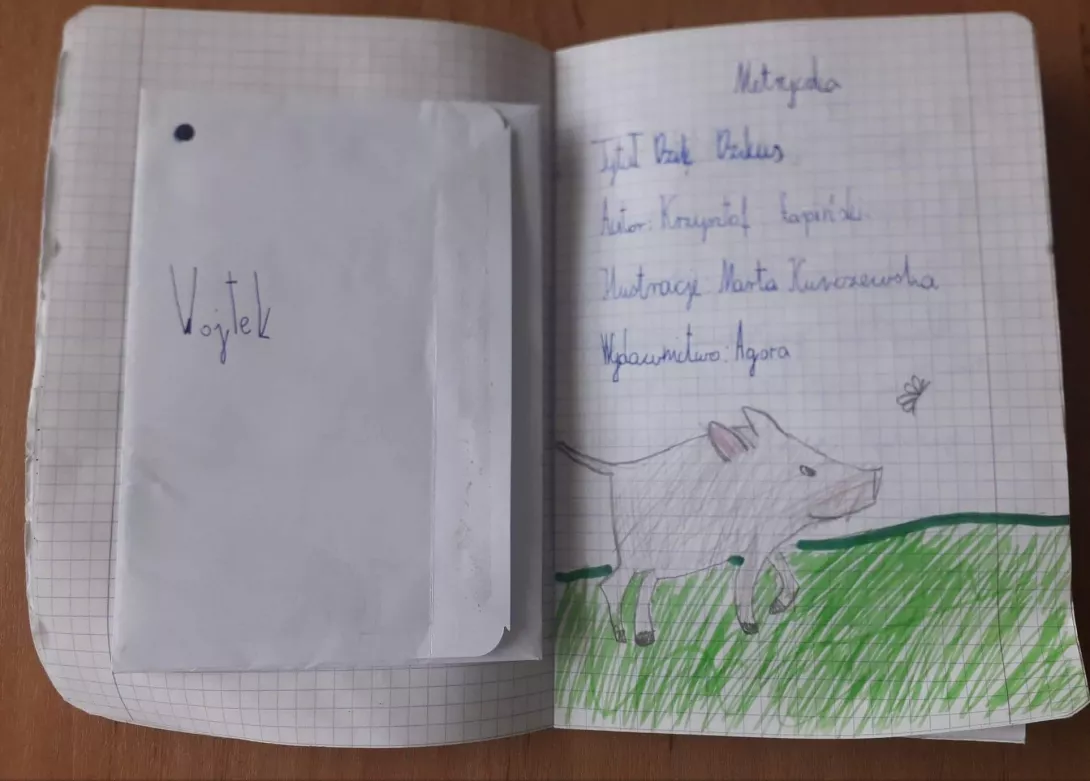 Vojtek
Metryczka
Tytuł Dzik Dzikus
Autor: Krzysztof Łapiński
Ilustracje: Marta Kurczewska
Wydawnictwo: Agora